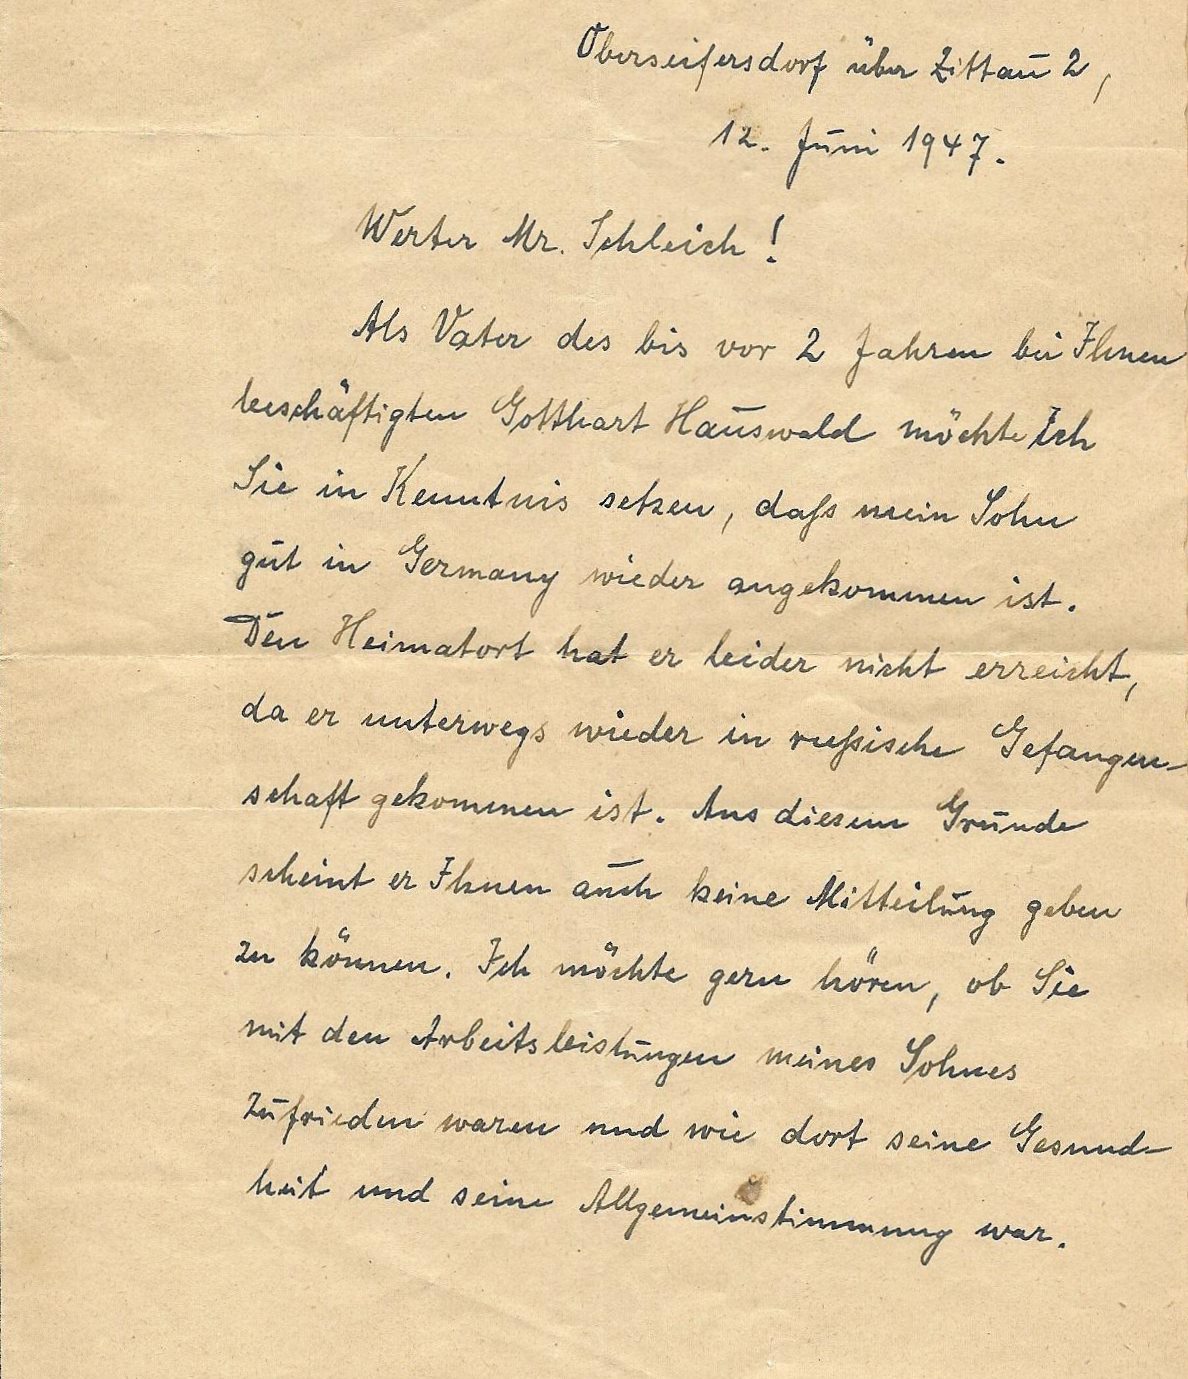 Oberseifersdorf über Zittau 2,
12. Juni 1947.
Werter Mr. Schleich!
Als Vater des bis vor 2 Jahren bei Ihnen
beschäftigten Gotthart Hauswald möchte Ich
Sie in Kenntnis setzen, daß mein Sohn
gut in Germany wieder angekommen ist.
Den Heimatort hat er leider nicht erreicht,
da er unterwegs wieder in rußische Gefangen-
schaft gekommen ist. Aus diesem Grunde
scheint er Ihnen auch keine Mitteilung geben
zu können. Ich möchte gern hören, ob Sie
mit den Arbeitsleistungen meines Sohnes
zufrieden waren und wie dort seine Gesund-
heit und seine Allgemeinstimmung war.